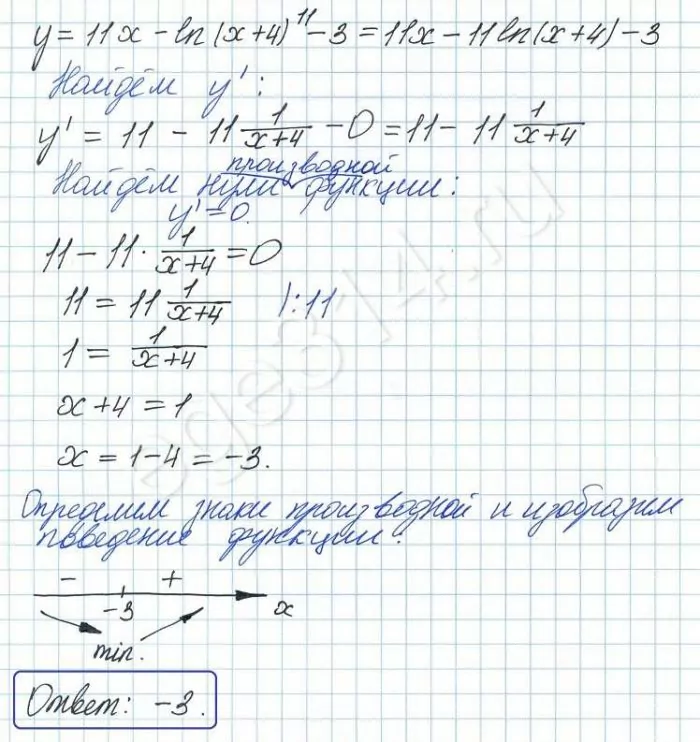 y = 11x - ln(x+4)^11 - 3 = 11x - 11ln(x+4) - 3
Найдём y':
y' = 11 - 11 1/(x+4) - 0 = 11 - 11 1/(x+4)
производной
Найдём нули функции:
y' = 0.
11 - 11 · 1/(x+4) = 0
11 = 11 1/(x+4) |:11
1 = 1/(x+4)
x + 4 = 1
x = 1 - 4 = -3.
Определим знаки производной и изобразим
поведение функции:
- +
-3 x
min.
Ответ: -3.
ege314.ru